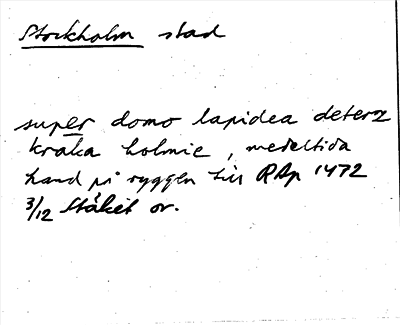 Stockholm stad
super domo lapidea deterz
kraka holmie, medeltida
hand på ryggen till RAp 1472
3/12 Stäket or.